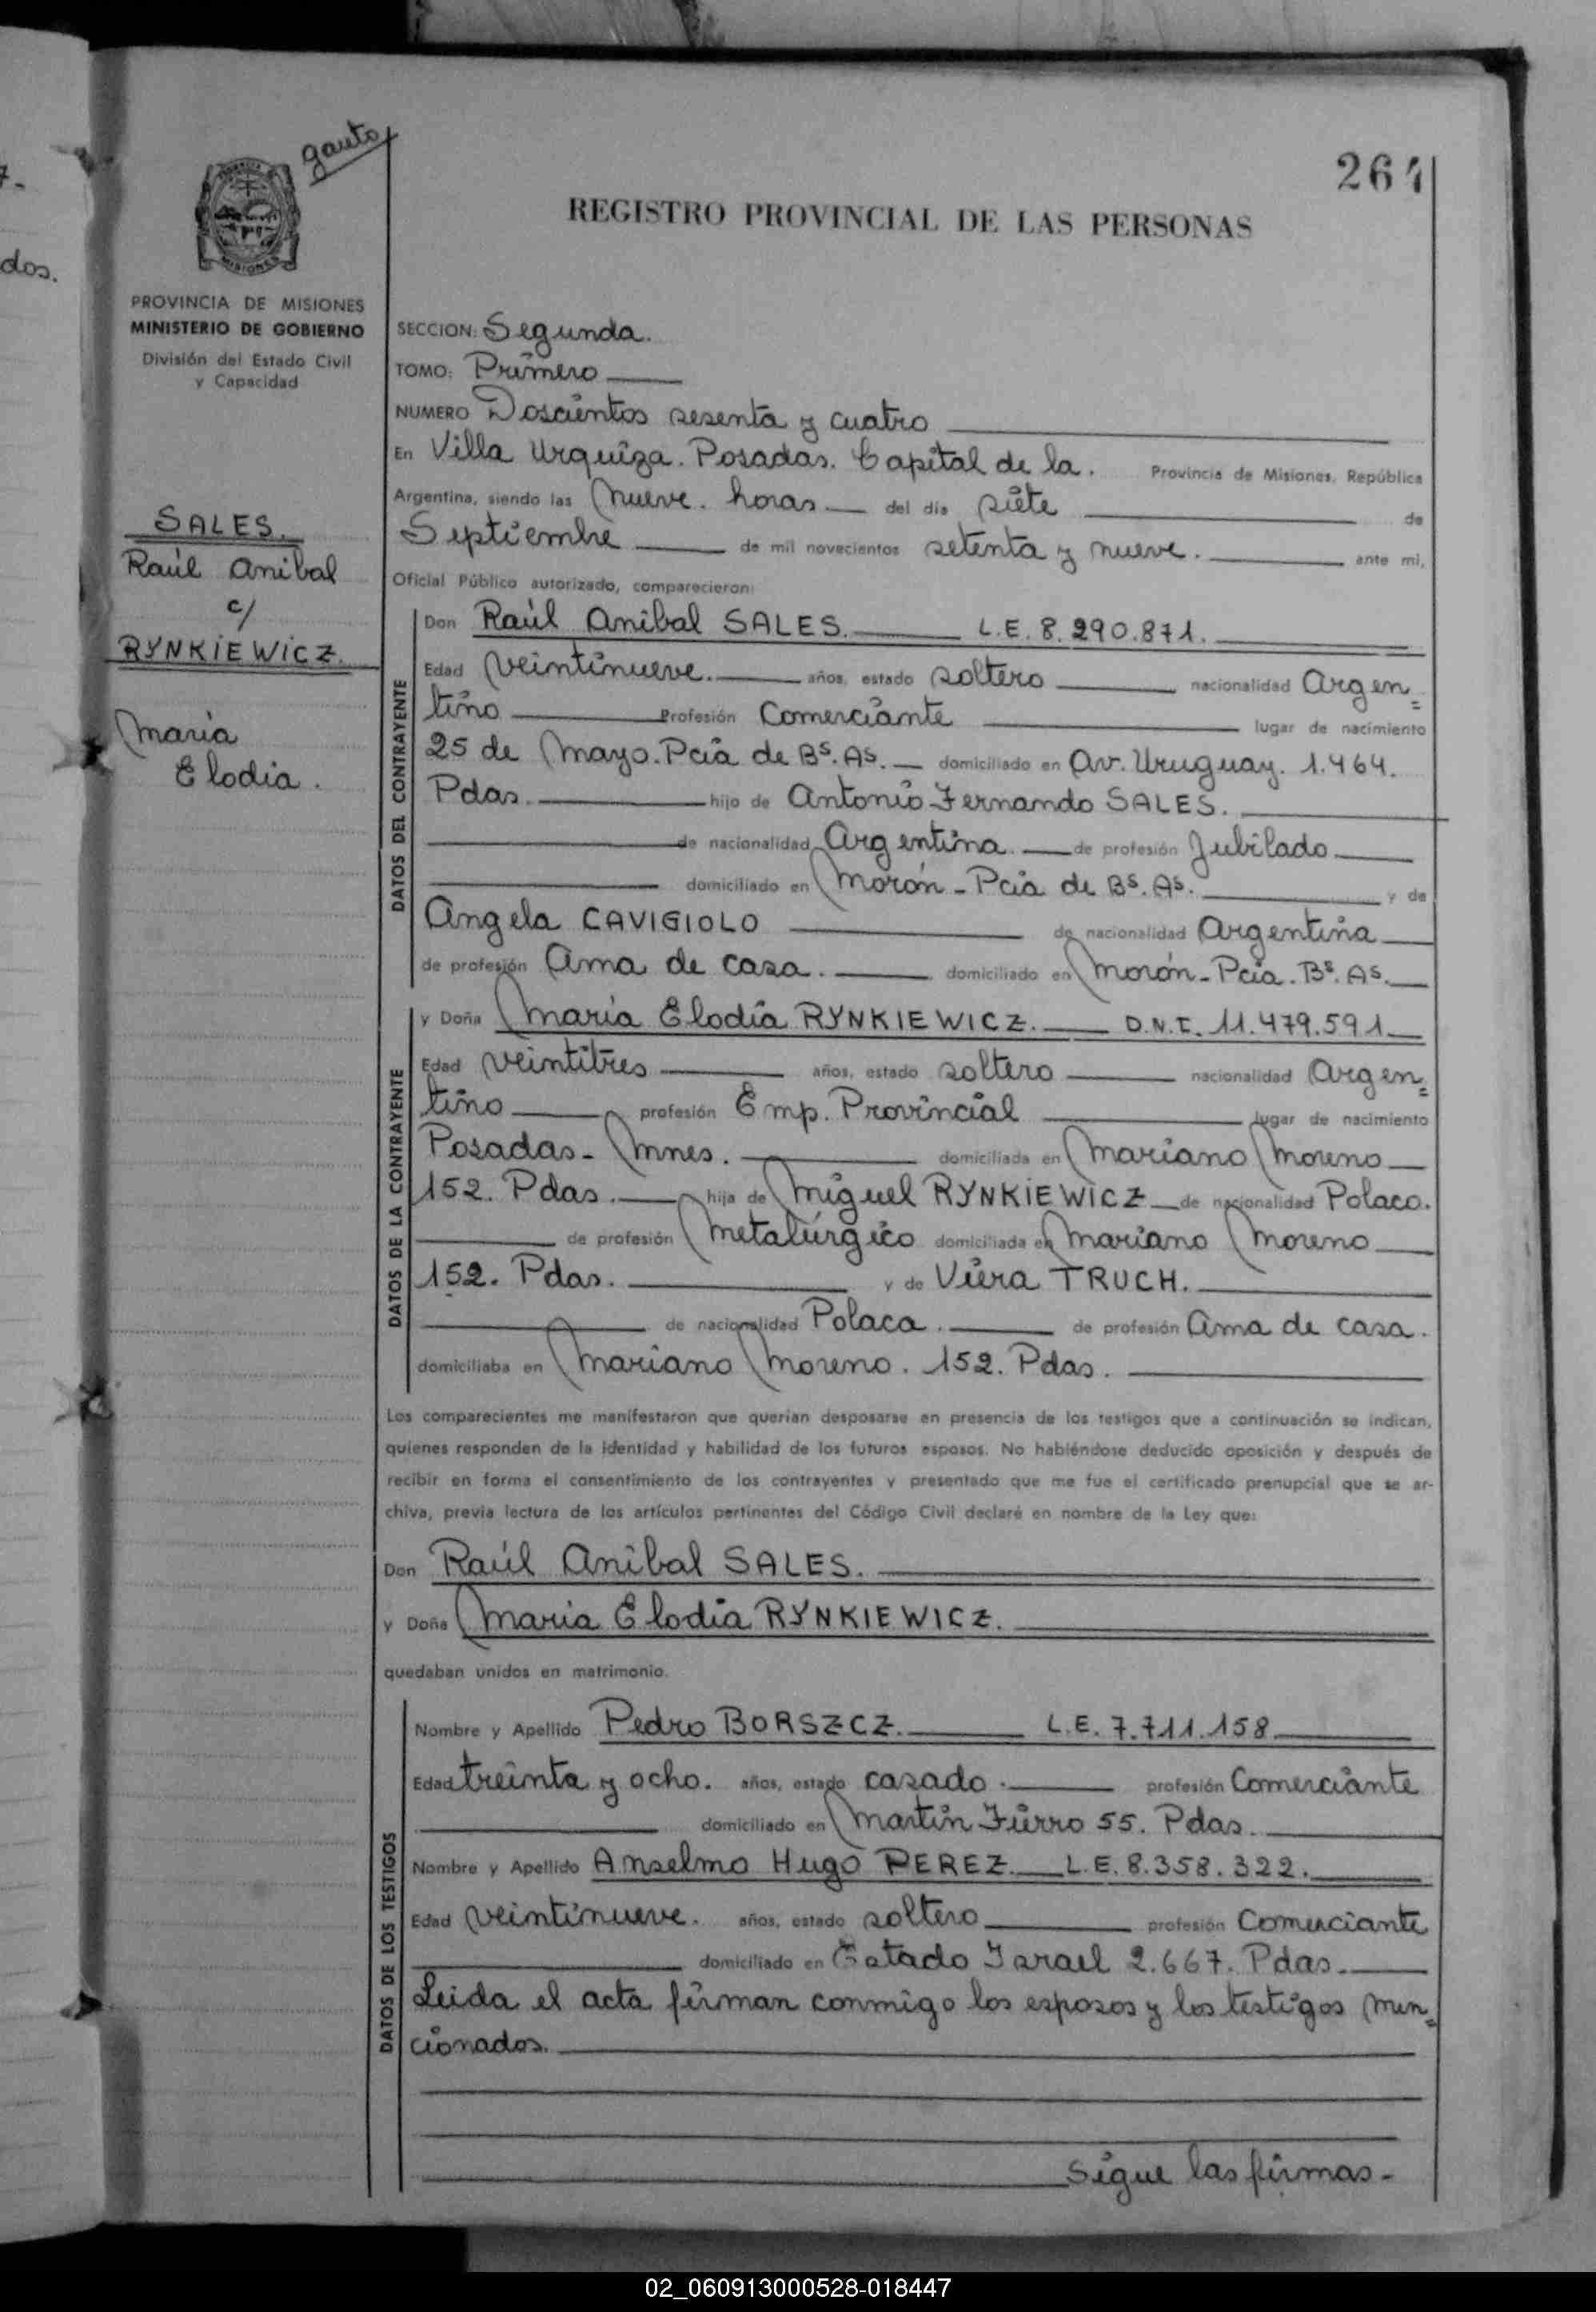 7-
dos.
gauto
264
REGISTRO PROVINCIAL DE LAS PERSONAS
MISIONES
PROVINCIA DE MISIONES
MINISTERIO DE GOBIERNO
División del Estado Civil
y Capacidad
SALES.
Raúl Anibal
c/
RYNKIEWICZ.
María
Elodia.
SECCION: Segunda.
TOMO: Primero
NUMERO Doscientos sesenta y cuatro
En Villa Urquiza. Posadas. Capital de la. Provincia de Misiones, República
Argentina, siendo las Nueve. horas. del día siete de
Septiembre de mil novecientos setenta y nueve. ante mi,
Oficial Público autorizado, comparecieron:
DATOS DEL CONTRAYENTE
Don Raúl Anibal SALES. L.E. 8.290.871.
Edad Veintinueve. años, estado soltero nacionalidad Argen=
tino Profesión Comerciante lugar de nacimiento
25 de Mayo. Pcia de Bs. As. domiciliado en Av. Uruguay. 1.464.
Pdas. hijo de Antonio Fernando SALES.
de nacionalidad Argentina. de profesión Jubilado
domiciliado en Morón - Pcia de Bs. As. y de
Angela CAVIGIOLO de nacionalidad Argentina
de profesión Ama de casa. domiciliado en Morón - Pcia. Bs. As.
DATOS DE LA CONTRAYENTE
y Doña María Elodia RYNKIEWICZ. D.N.I. 11.479.591
Edad Veintitres años, estado soltero nacionalidad Argen=
tino profesión Emp. Provincial lugar de nacimiento
Posadas - Mnes. domiciliada en Mariano Moreno
152. Pdas. hija de Miguel RYNKIEWICZ de nacionalidad Polaco.
de profesión Metalúrgico domiciliada en Mariano Moreno
152. Pdas. y de Viera TRUCH.
de nacionalidad Polaca. de profesión Ama de casa.
domiciliaba en Mariano Moreno. 152. Pdas.
Los comparecientes me manifestaron que querían desposarse en presencia de los testigos que a continuación se indican,
quienes responden de la identidad y habilidad de los futuros esposos. No habiéndose deducido oposición y después de
recibir en forma el consentimiento de los contrayentes y presentado que me fue el certificado prenupcial que se ar-
chiva, previa lectura de los artículos pertinentes del Código Civil declaré en nombre de la Ley que:
Don Raúl Anibal SALES.
y Doña María Elodia RYNKIEWICZ.
quedaban unidos en matrimonio.
DATOS DE LOS TESTIGOS
Nombre y Apellido Pedro BORSZCZ. L.E. 7.711.158
Edad treinta y ocho. años, estado casado. profesión Comerciante
domiciliado en Martín Fierro 55. Pdas.
Nombre y Apellido Anselmo Hugo PEREZ. L.E. 8.358.322.
Edad Veintinueve. años, estado soltero profesión Comerciante
domiciliado en Estado Israel 2.667. Pdas.
Leida el acta firman conmigo los esposos y los testigos men=
cionados.
Sigue las firmas-
02_060913000528-018447